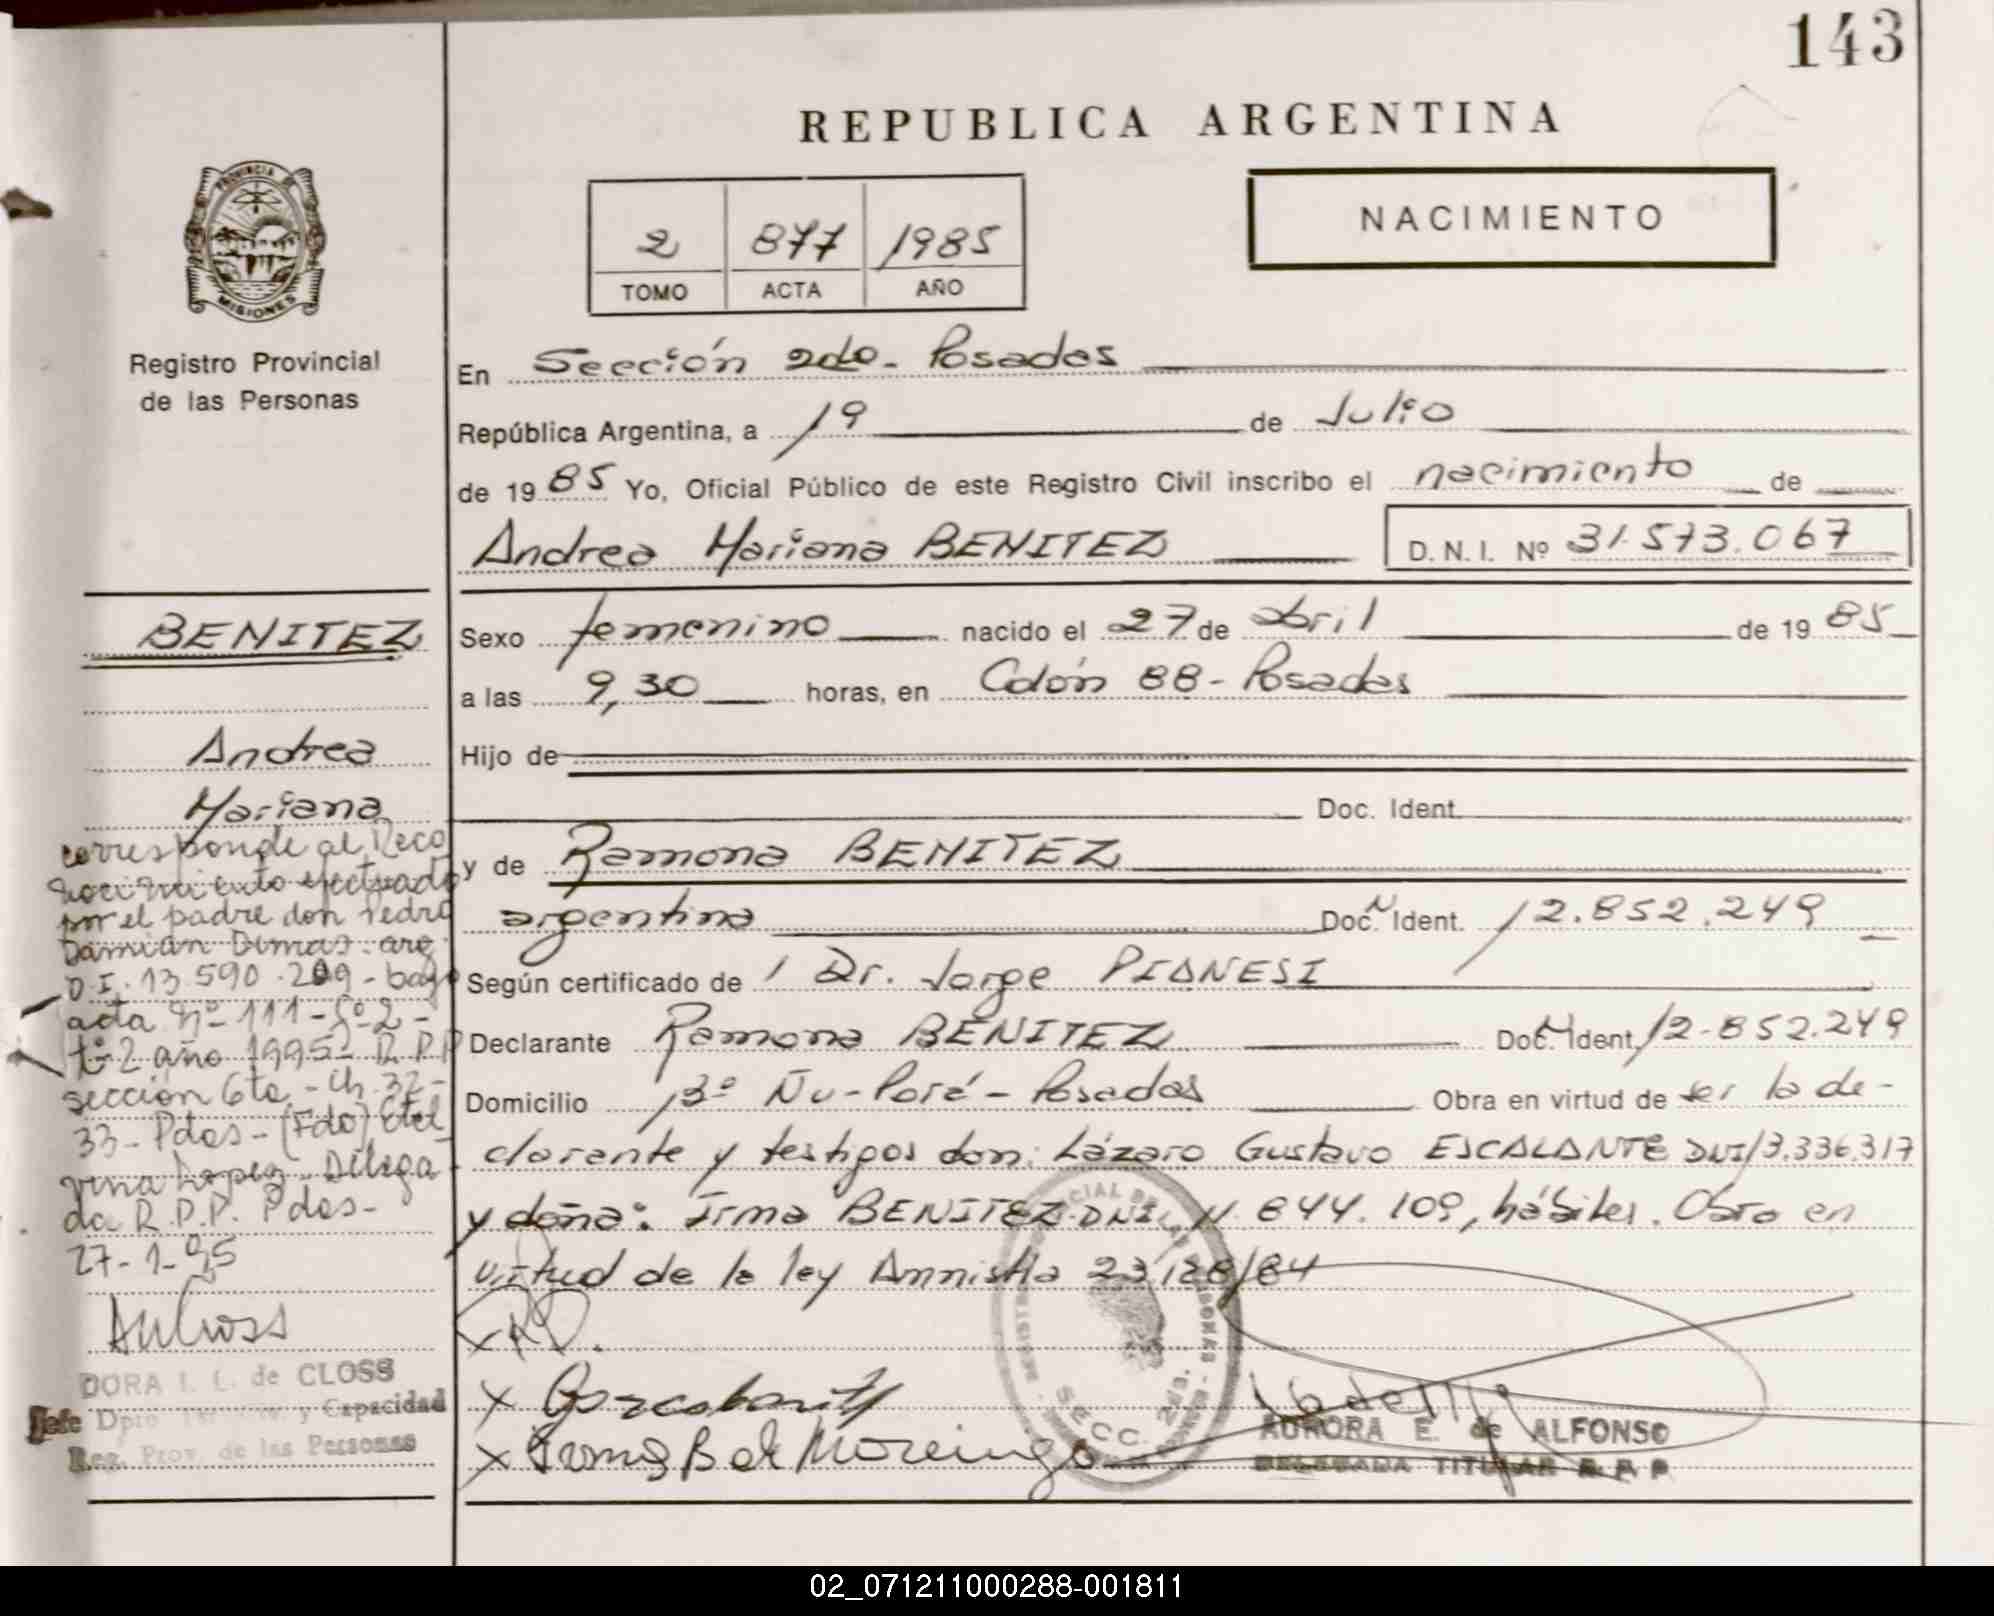 143
REPUBLICA ARGENTINA
PROVINCIA DE
MISIONES
2 877 1985
TOMO ACTA AÑO
NACIMIENTO
Registro Provincial
de las Personas
En Sección 2da - Posadas
República Argentina, a 19 de Julio
de 1985 Yo, Oficial Público de este Registro Civil inscribo el nacimiento de
Andrea Mariana BENITEZ D. N. I. Nº 31.573.067
Sexo femenino nacido el 27 de abril de 1985
a las 9,30 horas, en Colón 88 - Posadas
Hijo de
Doc. Ident.
y de Ramona BENITEZ
argentina Doc. Ident. 12.852.249
Según certificado de Dr. Jorge PIANESI
Declarante Ramona BENITEZ Doc. Ident. 12.852.249
Domicilio Bº Ñu-Porá - Posadas Obra en virtud de ser la de-
clarante y testigos don: Lázaro Gustavo ESCALANTE DNI 13.336.317
y doña: Irma BENITEZ DNI 844.109, hábiles. Obra en
virtud de la ley Amnistía 23.128/84
BENITEZ
Andrea
Mariana
corresponde al Reco
nocimiento efectuado
por el padre don Pedro
Damian Dimas - arg.
D.I. 13.590.209 - bajo
acta Nº 111 - Fº 2 -
tº 2 año 1995 - R.P.P
sección 6ta - Ch. 32-
33 - Pdas - (Fdo) Etel
vina Lopez - Delega
da R.P.P. Pdas -
27-1-95
DORA I. L. de CLOSS
Jefe Dpto. y Capacidad
Reg. Prov. de las Personas
SECC. 2da.
AURORA E. de ALFONSO
DELEGADA TITULAR R.P.P
02_071211000288-001811